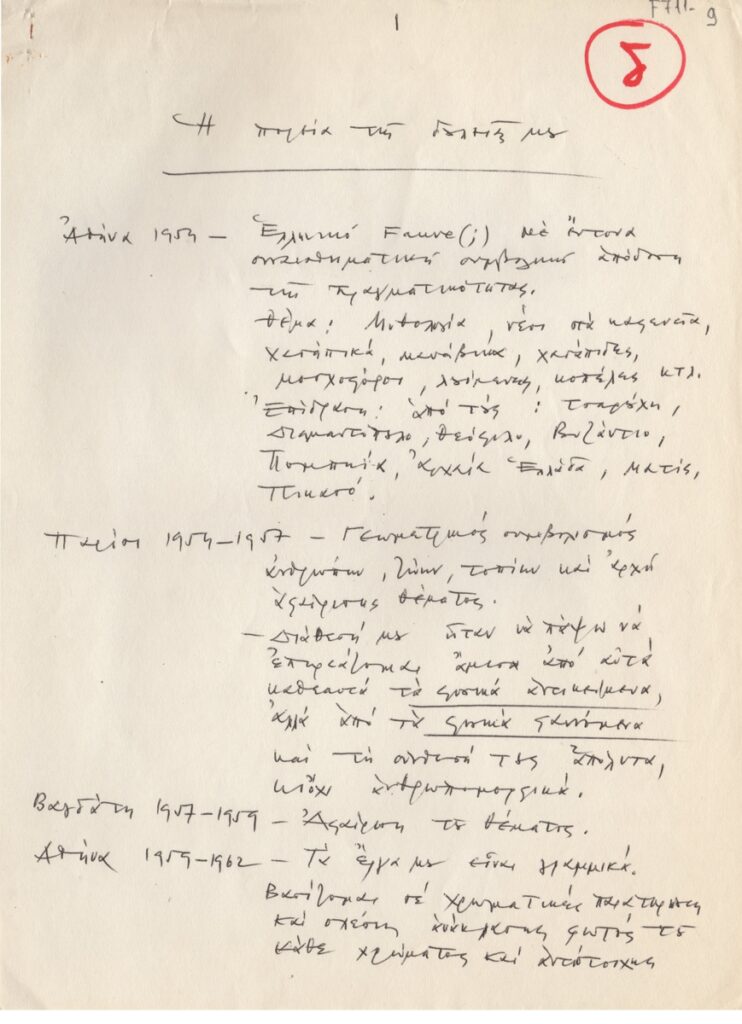 1
F711-9
δ
Ἡ πορεία τῆς δουλειᾶς μου
Ἀθήνα 1954 – Ἑλληνικό Fauve(;) μὲ ἔντονα
συναισθηματική συμβολική ἀπόδοση
τῆς πραγματικότητας.
Θέμα: Μυθολογία, νέοι στὰ καφενεῖα,
χασάπικά, μανάβικα, χασάπιδες,
μοσχοφόροι, λιμενας, κοπέλες κτλ.
Ἐπίδραση: ἀπό τούς: Τσαρούχη,
Διαμαντόπουλο, Θεόφιλο, Βυζάντιο,
Πομπηία, Ἀρχαία Ἑλλάδα, Ματίς,
Πικασό.
Παρίσι 1954–1957 – Γεωμετρικός συμβολισμός
ἀνθρώπων, ζώων, τοπίων καὶ ἀρχή
ἀφαίρεσης θέματος.
– Διάθεσή μου ἦταν νὰ πάψω νὰ
ἐπηρεάζομαι ἄμεσα ἀπό αὐτά
καθεαυτά τὰ φυσικά ἀντικείμενα,
ἀλλά ἀπό τὰ φυσικά φαινόμενα
καὶ τὴ σύνθεσή τους ἀπόλυτα,
κι ὄχι ἀνθρωπομορφικά.
Βαγδάτη 1957–1959 – Ἀφαίρεση τοῦ θέματος.
Ἀθήνα 1959–1962 – Τὰ ἔργα μου εἶναι γραμμικά.
Βασίζομαι σέ χρωματικές παρατηρήσεις
καὶ σχέση ἀνάκλασης φωτός τοῦ
κάθε χρώματος καὶ ἀντίστοιχης